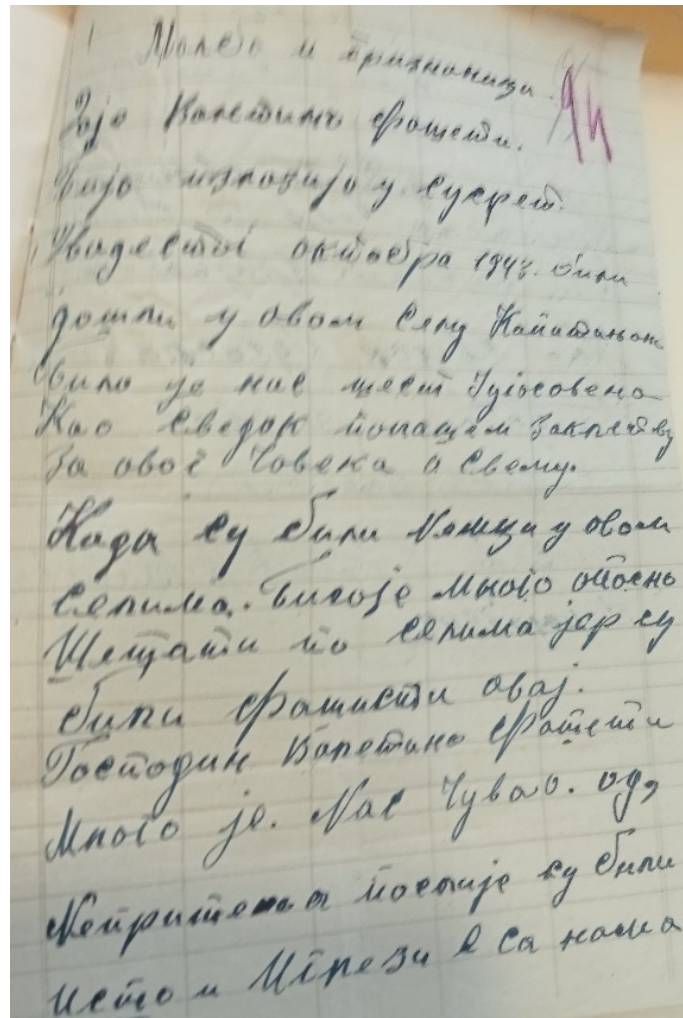 Молба и признаници
Које Валетинъ Фашети.
изложијо у сусрет
Двадестог октобра 1943. били
дошли у овом селу
било је нас шест Југословена
Као сведок полажем заклетву
за овог човека о свему.
Када су били Немци у овом
селима. било је много опосно
Шетати по селима јер су
били фашисти овај.
Господин Валетино Фашети
Много је. Нас Чувао. од,
Непритела послије су били
исто и са нама